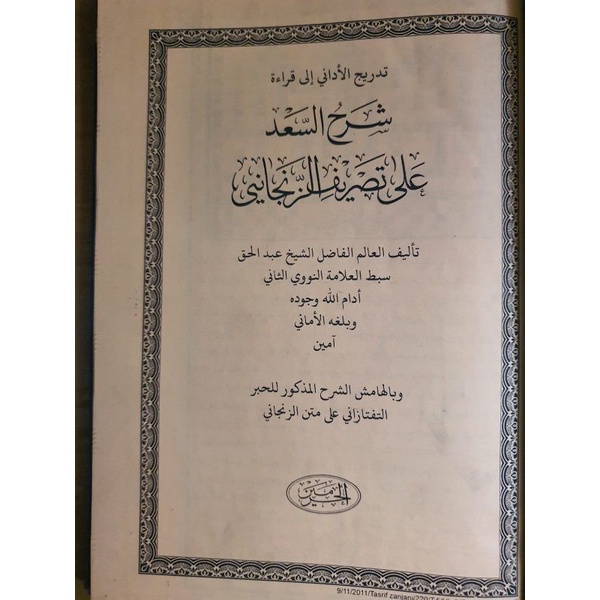 تدريج الأداني إلى قراءة
شَرْحُ السَّعْد
عَلَى تَصْرِيْفِ الزَّنْجَانِيّ
تأليف العالم الفاضل الشيخ عبد الحق
سبط العلامة النووي الثاني
أدام الله وجوده
وبلغه الأماني
آمين
وبالهامش الشرح المذكور للحبر
التفتازاني على متن الزنجاني
الحرمين
9/11/2011/Tasrif zanjani/220/